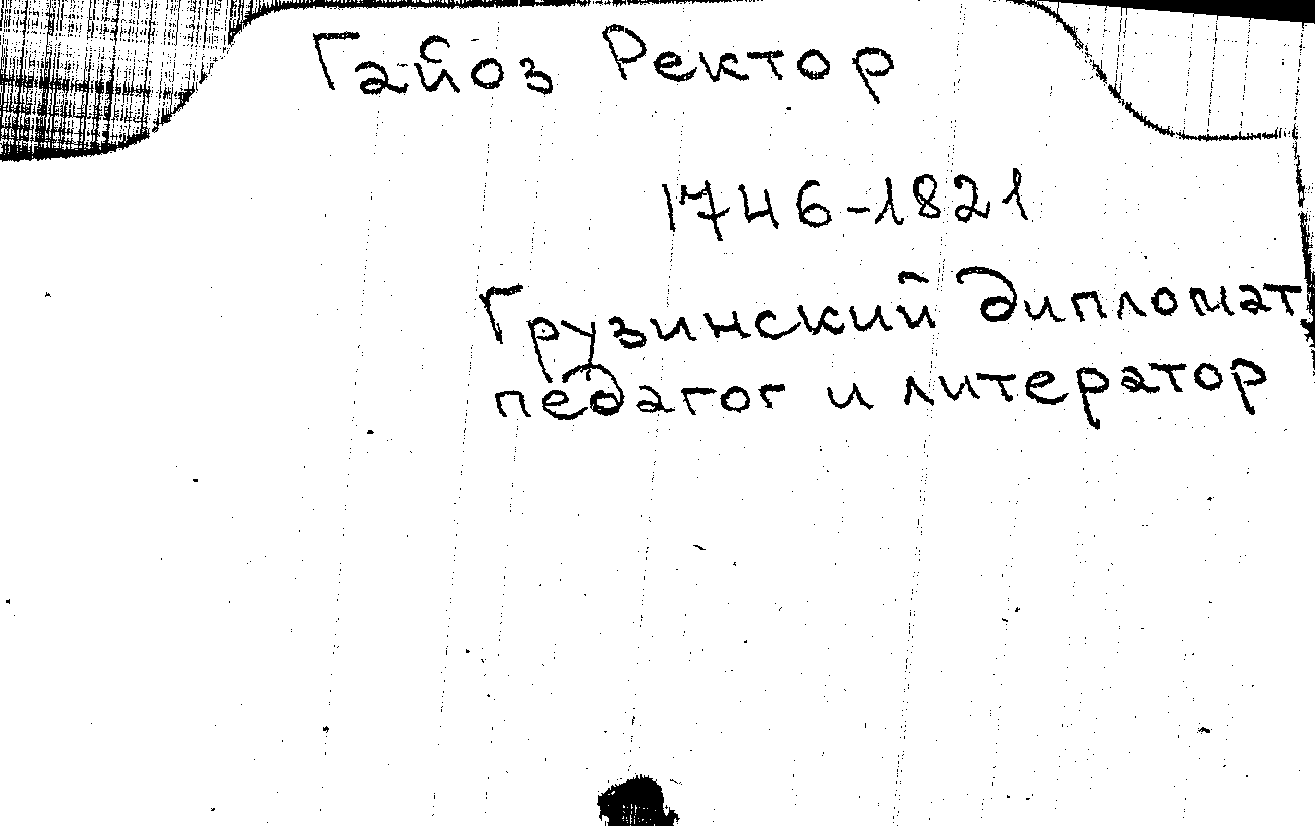 Гайоз Ректор
1746-1821
Грузинский дипломат,
педагог и литератор